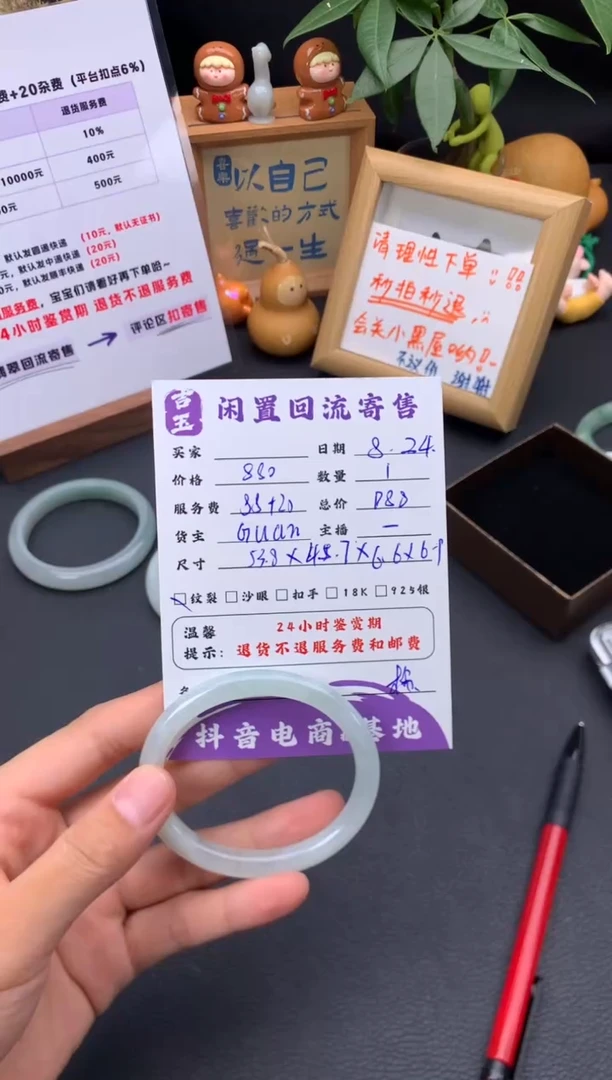 费+20杂费 (平台扣点6%)
退货服务费
10%
10000元 400元
500元
默认发圆通快递 (10元，默认无证书)
元，默认发中通快递 (20元)
0元，默认发顺丰快递 (20元)
服务费，宝宝们请看好再下单哈~
24小时鉴赏期 退货不退服务费
翡翠回流寄售 → 评论区扣寄售
喜乐
以自己
喜欢的方式
过一生
请理性下单 !!
秒拍秒退
会关小黑屋
谢谢
吉玉 闲置回流寄售
买家 日期 8.24.
价格 880 数量 1
服务费 88+20 总价
货主 Guan 主播 一
尺寸
纹裂 沙眼 扣手 18K 925银
温馨 24小时鉴赏期
提示: 退货不退服务费和邮费
抖音电商 基地